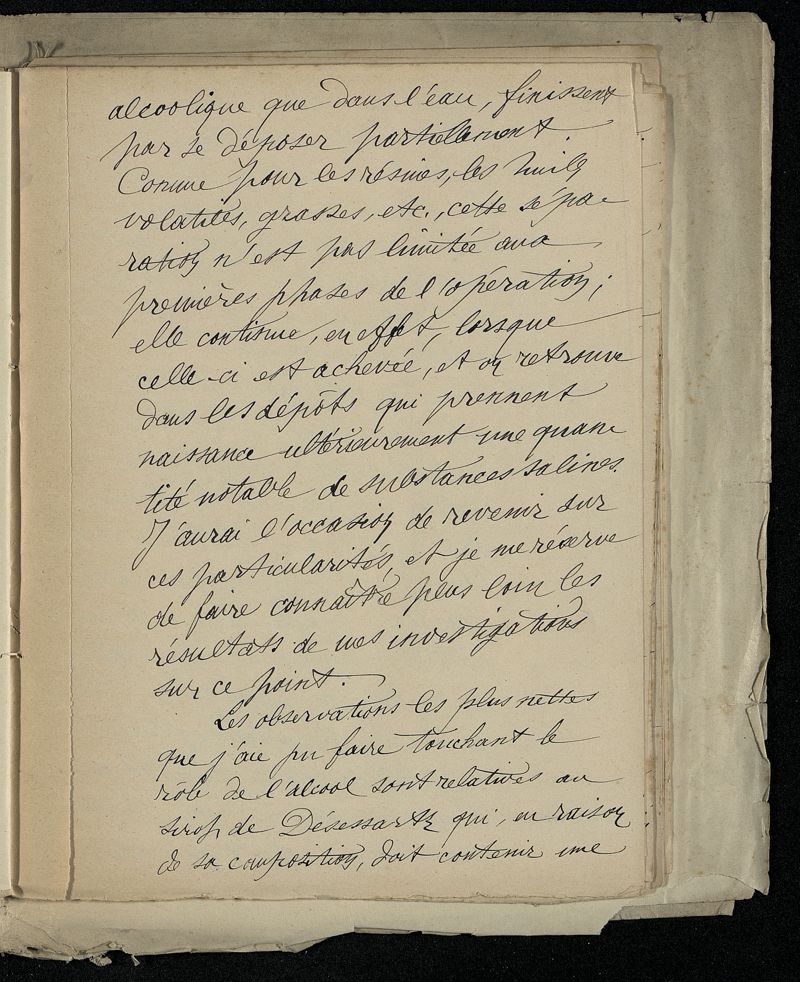 alcoolique que dans l'eau, finissent
par se déposer partiellement.
Comme pour les résines, les huiles
volatiles, grasses, etc., cette sépa-
ration n'est pas limitée aux
premières phases de l'opération;
elle continue, en effet, lorsque
celle-ci est achevée, et on retrouve
dans les dépôts qui prennent
naissance ultérieurement une quan-
tité notable de substances salines.
J'aurai l'occasion de revenir sur
ces particularités, et je me réserve
de faire connaître plus loin les
résultats de mes investigations
sur ce point.
Les observations les plus nettes
que j'aie pu faire touchant le
rôle de l'alcool sont relatives au
sirop de Désessartz qui, en raison
de sa composition, doit contenir une